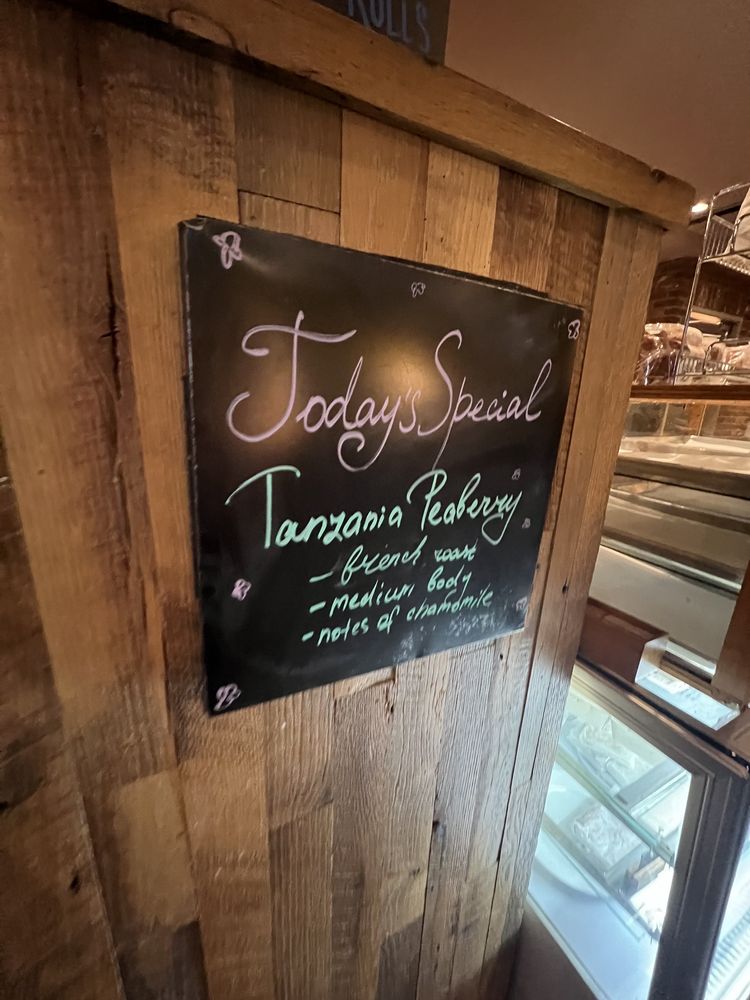 ROLLS
Today's Special
Tanzania Peaberry
- french roast
- medium body
- notes of chamomile